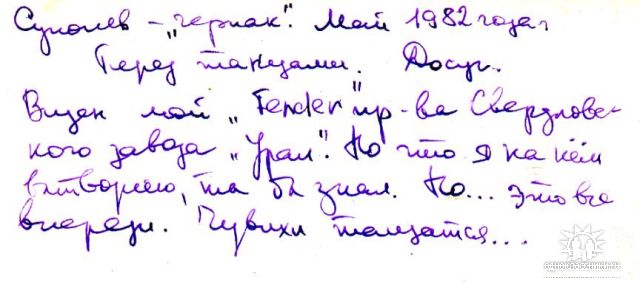 Суполев - „черпак". Май 1982 года,
Перед танцами. Досуг.
Виден мой „Fender" пр-ва Свердловс-
кого завода „Урал". Но что я на нём
вытворяю, та бы знал. Но... это все
впереди. Чувихи тащатся...
ОДНОКЛАССНИКИ.RU